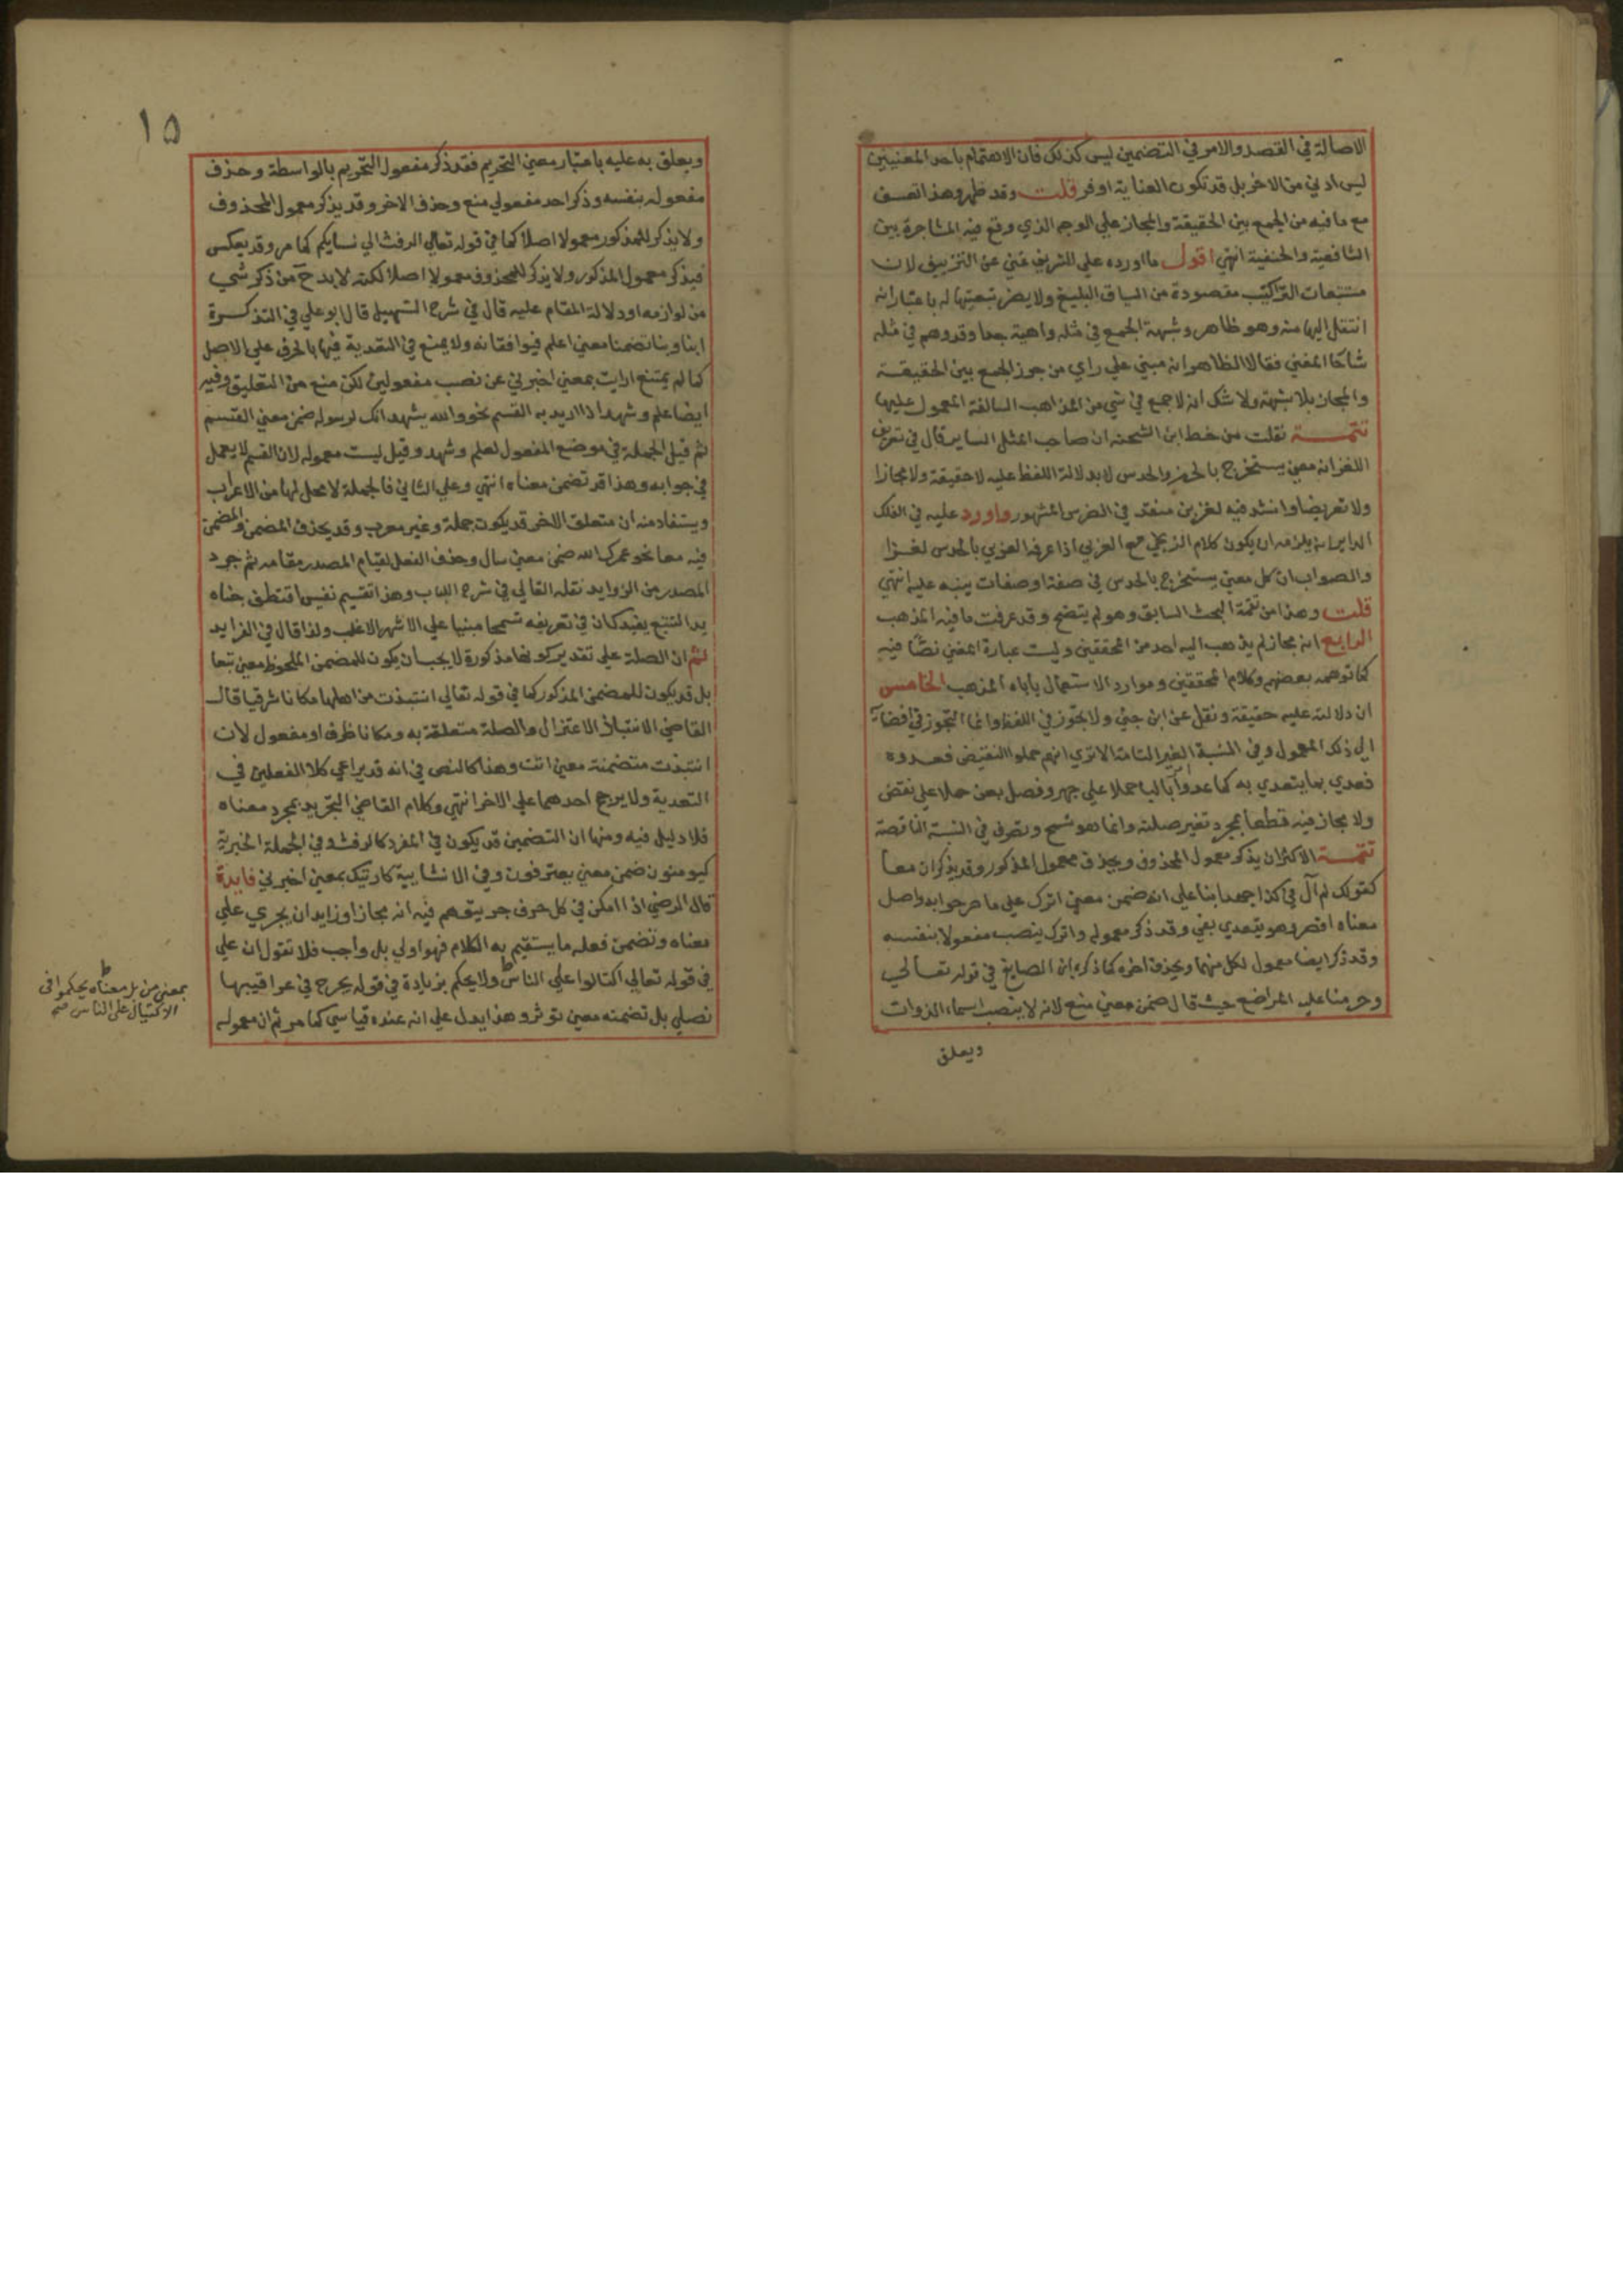 الاصالة في القصد والامر في التضمين ليس كذلك فان الاهتمام باحد المعنيين
ليس ادني من الاخر بل قد تكون العناية اوفر قلت وقد ظهر وهذا تعسف
مع ما فيه من الجمع بين الحقيقة والمجاز علي الوجه الذي وقع فيه المشاجرة بين
الشافعية والحنفية انتهي اقول ما اورده علي الشريف غني عن التزييف لان
مستتبعات التراكيب مقصودة من السياق البليغ ولا يضر تبعيتها له باعتبار انه
انتقل اليها منه وهو ظاهر وشبهة الجمع في مثله واهية جدا وقد وهم في مثله
شارحا المغني فقالا الظاهر انه مبني علي راي من جوز الجمع بين الحقيقة
والمجاز بلا شبهة ولا شك انه لا جمع في شي من المذاهب السالفة المعمول عليها
تتمة نقلت من خط ابن الشحنه ان صاحب المثل الساير قال في تعريف
اللغز انه معني يستخرج بالحزر والحدس لا بدلالة اللفظ عليه لا حقيقة ولا مجازا
ولا تعريضا وانشد فيه لغزين منعقد في الضرس المشهور واورد عليه في الفلك
الداير انه يلزمه ان يكون كلام الزنجي مع العربي اذا عرفه العربي بالحدس لغزا
والصواب ان كل معني يستخرج بالحدس في صفة اوصفات ينبه عليه انتهي
قلت وهذا من تتمة البحث السابق وهو لم يتضح وقد عرفت ما فيه المذهب
الرابع انه مجاز لم يذهب اليه احد من المحققين وليت عبارة المغني نصا فيه
كما توهمه بعضهم وكلام المحققين وموارد الاستعمال ياباه المذهب الخامس
ان دلالته عليه حقيقة ونقل عن ابن جني ولا تجوز في اللفظ وانما التجوز في افضائه
الي ذلك المعمول وفي النسبة الغير التامة الا تري انهم حملوا النقيض فعدوه
فعدي بما يتعدي به كما عدوا اسر بالبا حملا علي جهر وفصل بعن حملا علي نقض
ولا مجاز فيه قطعا بمجرد تغير صلته وانما هو تسمح وتصرف في النسبة الناقصة
تتمة الاكثر ان يذكر معمول المحذوف ويحذف معمول المذكور وقد يذكران معا
كقولك لم آل في كذا جهدا بنا علي انه ضمن معني اترك علي ما مر جوابه واصل
معناه اقصر وهو يتعدي بفي وقد ذكر معموله واترك ينصب مفعولا بنفسه
وقد ذكر ايضا معمول لكل منهما ويحذف اخره كما ذكره ابن الصايغ في قوله تعالي
وحرمنا عليه المراضع حيث قال ضمن معني منع لانه لا ينصب اسماء الذوات
ويعلق
١٥
ويعلق به عليه باعتبار معني التحريم فقد ذكر مفعول التحريم بالواسطة وحذف
مفعوله بنفسه وذكر احد مفعولي منع وحذف الاخر وقد يذكر معمول المحذوف
ولا يذكر للمذكور معمولا اصلا كما في قوله تعالي الرفث الي نسايكم كما مر وقد يعكس
فيذكر معمول المذكور ولا يذكر للمحذوف معمولا اصلا لكنه لا بد ح من ذكر شي
من لوازمه او دلالة المقام عليه قال في شرح التسهيل قال ابو علي في التذكرة
انبا ونبا تضمنا معني اعلم فيوافقانه ولا يمتنع في التعدية فيها بالحرف علي الاصل
كما لم يمتنع ارايت بمعني اخبرني عن نصب مفعولين لكن منع من التعليق وفيه
ايضا علم وشهد اذا اريد به القسم نحو والله يشهد انك لرسوله ضمن معني القسم
ثم قيل الجملة في موضع المفعول لعلم وشهد وقيل ليست معموله لان القسم لا يعمل
في جوابه وهذا قد تضمن معناه انتهي وعلي الثاني فالجملة لا محل لها من الاعراب
ويستفاد منه ان متعلق الاخر قد يكون جملة وغير معرب وقد يحذف المضمن والمضمن
فيه معا نحو عمرك الله ضمن معني سال وحذف الفعل لقيام المصدر مقامه ثم جرد
المصدر من الزوايد نقله الفالي في شرح اللباب وهذا تقسيم نفيس اقتطف جناه
يد التتبع يفيدك ان في تعريفه تسمحا مبنيا علي الاشهر الاغلب ولذا قال في الفرايد
ثم ان الصلة علي تقدير كونها مذكورة لا يجب ان يكون للمضمن الملحوظ معني تبعا
بل قد يكون للمضمن المذكور كما في قوله تعالي انتبذت من اهلها مكانا شرقيا قال
القاضي الانتباذ الاعتزال والصلة متعلقة به ومكانا ظرف او مفعول لان
انتبذت متضمنة معني اتت وهذا كالنص في انه قد يراعي كلا الفعلين في
التعدية ولا يرجح احدهما علي الاخر انتهي وكلام القاضي التجريد بمجرد معناه
فلا دليل فيه ومنها ان التضمين قد يكون في المفرد كالرفث وفي الجملة الخبرية
كيومنون ضمن معني يعترفون وفي الانشايية كارتيك بمعني اخبرني فايدة
قال الرضي اذا امكن في كل حرف جر يتوهم فيه انه مجاز او زايد ان يجري علي
معناه وتضمن فعله ما يستقيم به الكلام فهو اولي بل واجب فلا تقول ان علي
في قوله تعالي اكتالوا علي الناس ولا يحكم بزيادة في قوله يجرح في عراقيبها
نصلي بل تضمنه معني توثر وهذا يدل علي انه عنده قياسي كما مر ثم ان معموله
بمعني من بل معناه يحكموا في
الاكتيال علي الناس صح